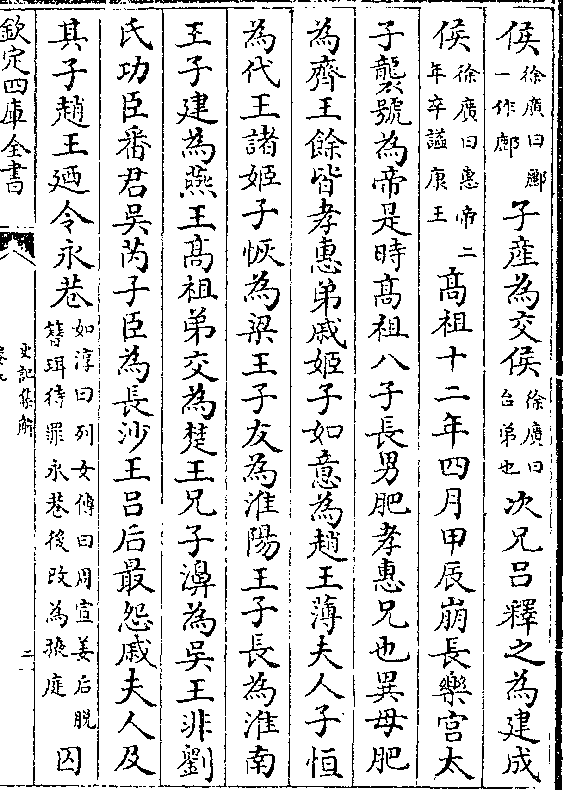 侯徐廣曰酈一作鄜子產為交侯徐廣曰台弟也次兄吕釋之為建成
侯徐廣曰惠帝二年卒謚康王髙祖十二年四月甲辰崩長樂宫太
子襲號為帝是時髙祖八子長男肥孝惠兄也異母肥
為齊王餘皆孝惠弟戚姬子如意為趙王薄夫人子恒
為代王諸姬子恢為梁王子友為淮陽王子長為淮南
王子建為燕王髙祖弟交為楚王兄子濞為吳王非劉
氏功臣番君吳芮子臣為長沙王吕后最怨戚夫人及
其子趙王廼令永巷如淳曰列女傳曰周宣姜后脫簪珥待罪永巷後改為掖庭囚
欽定四庫全書
史記集解
二